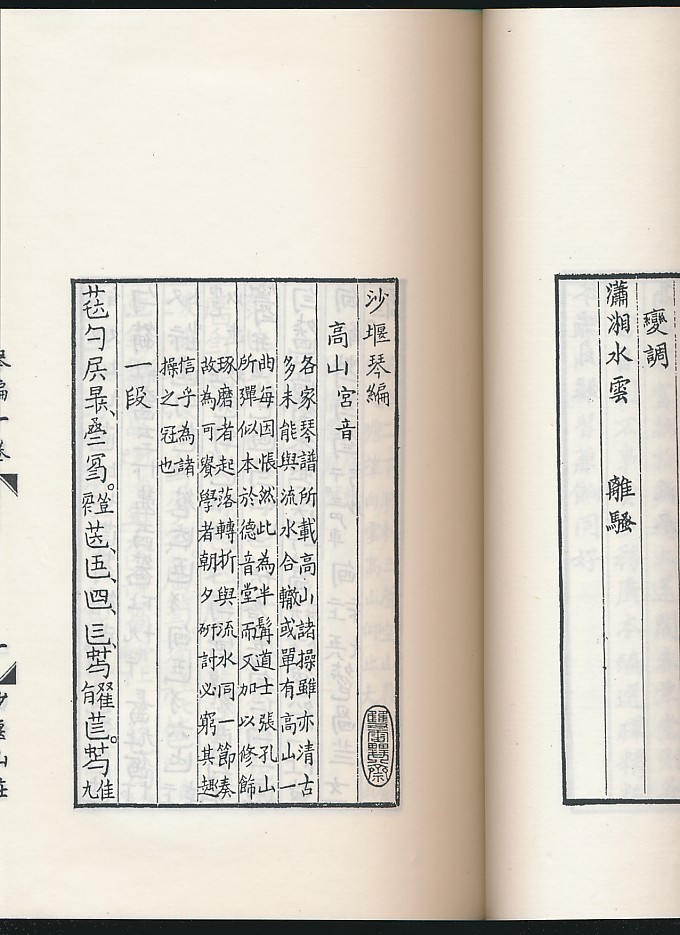 變調
瀟湘水雲 離騷
沙堰琴編
高山 宮音
各家琴譜所載高山諸操雖亦清古
多未能與流水合轍或單有高山一
曲每因悵然此為半髯道士張孔山
所彈似本於德音堂而又加以修飾
琢磨者起落轉折與流水同一節奏
故為可學者朝夕硏討必窮其趣
信乎為諸
操之冠也
一段